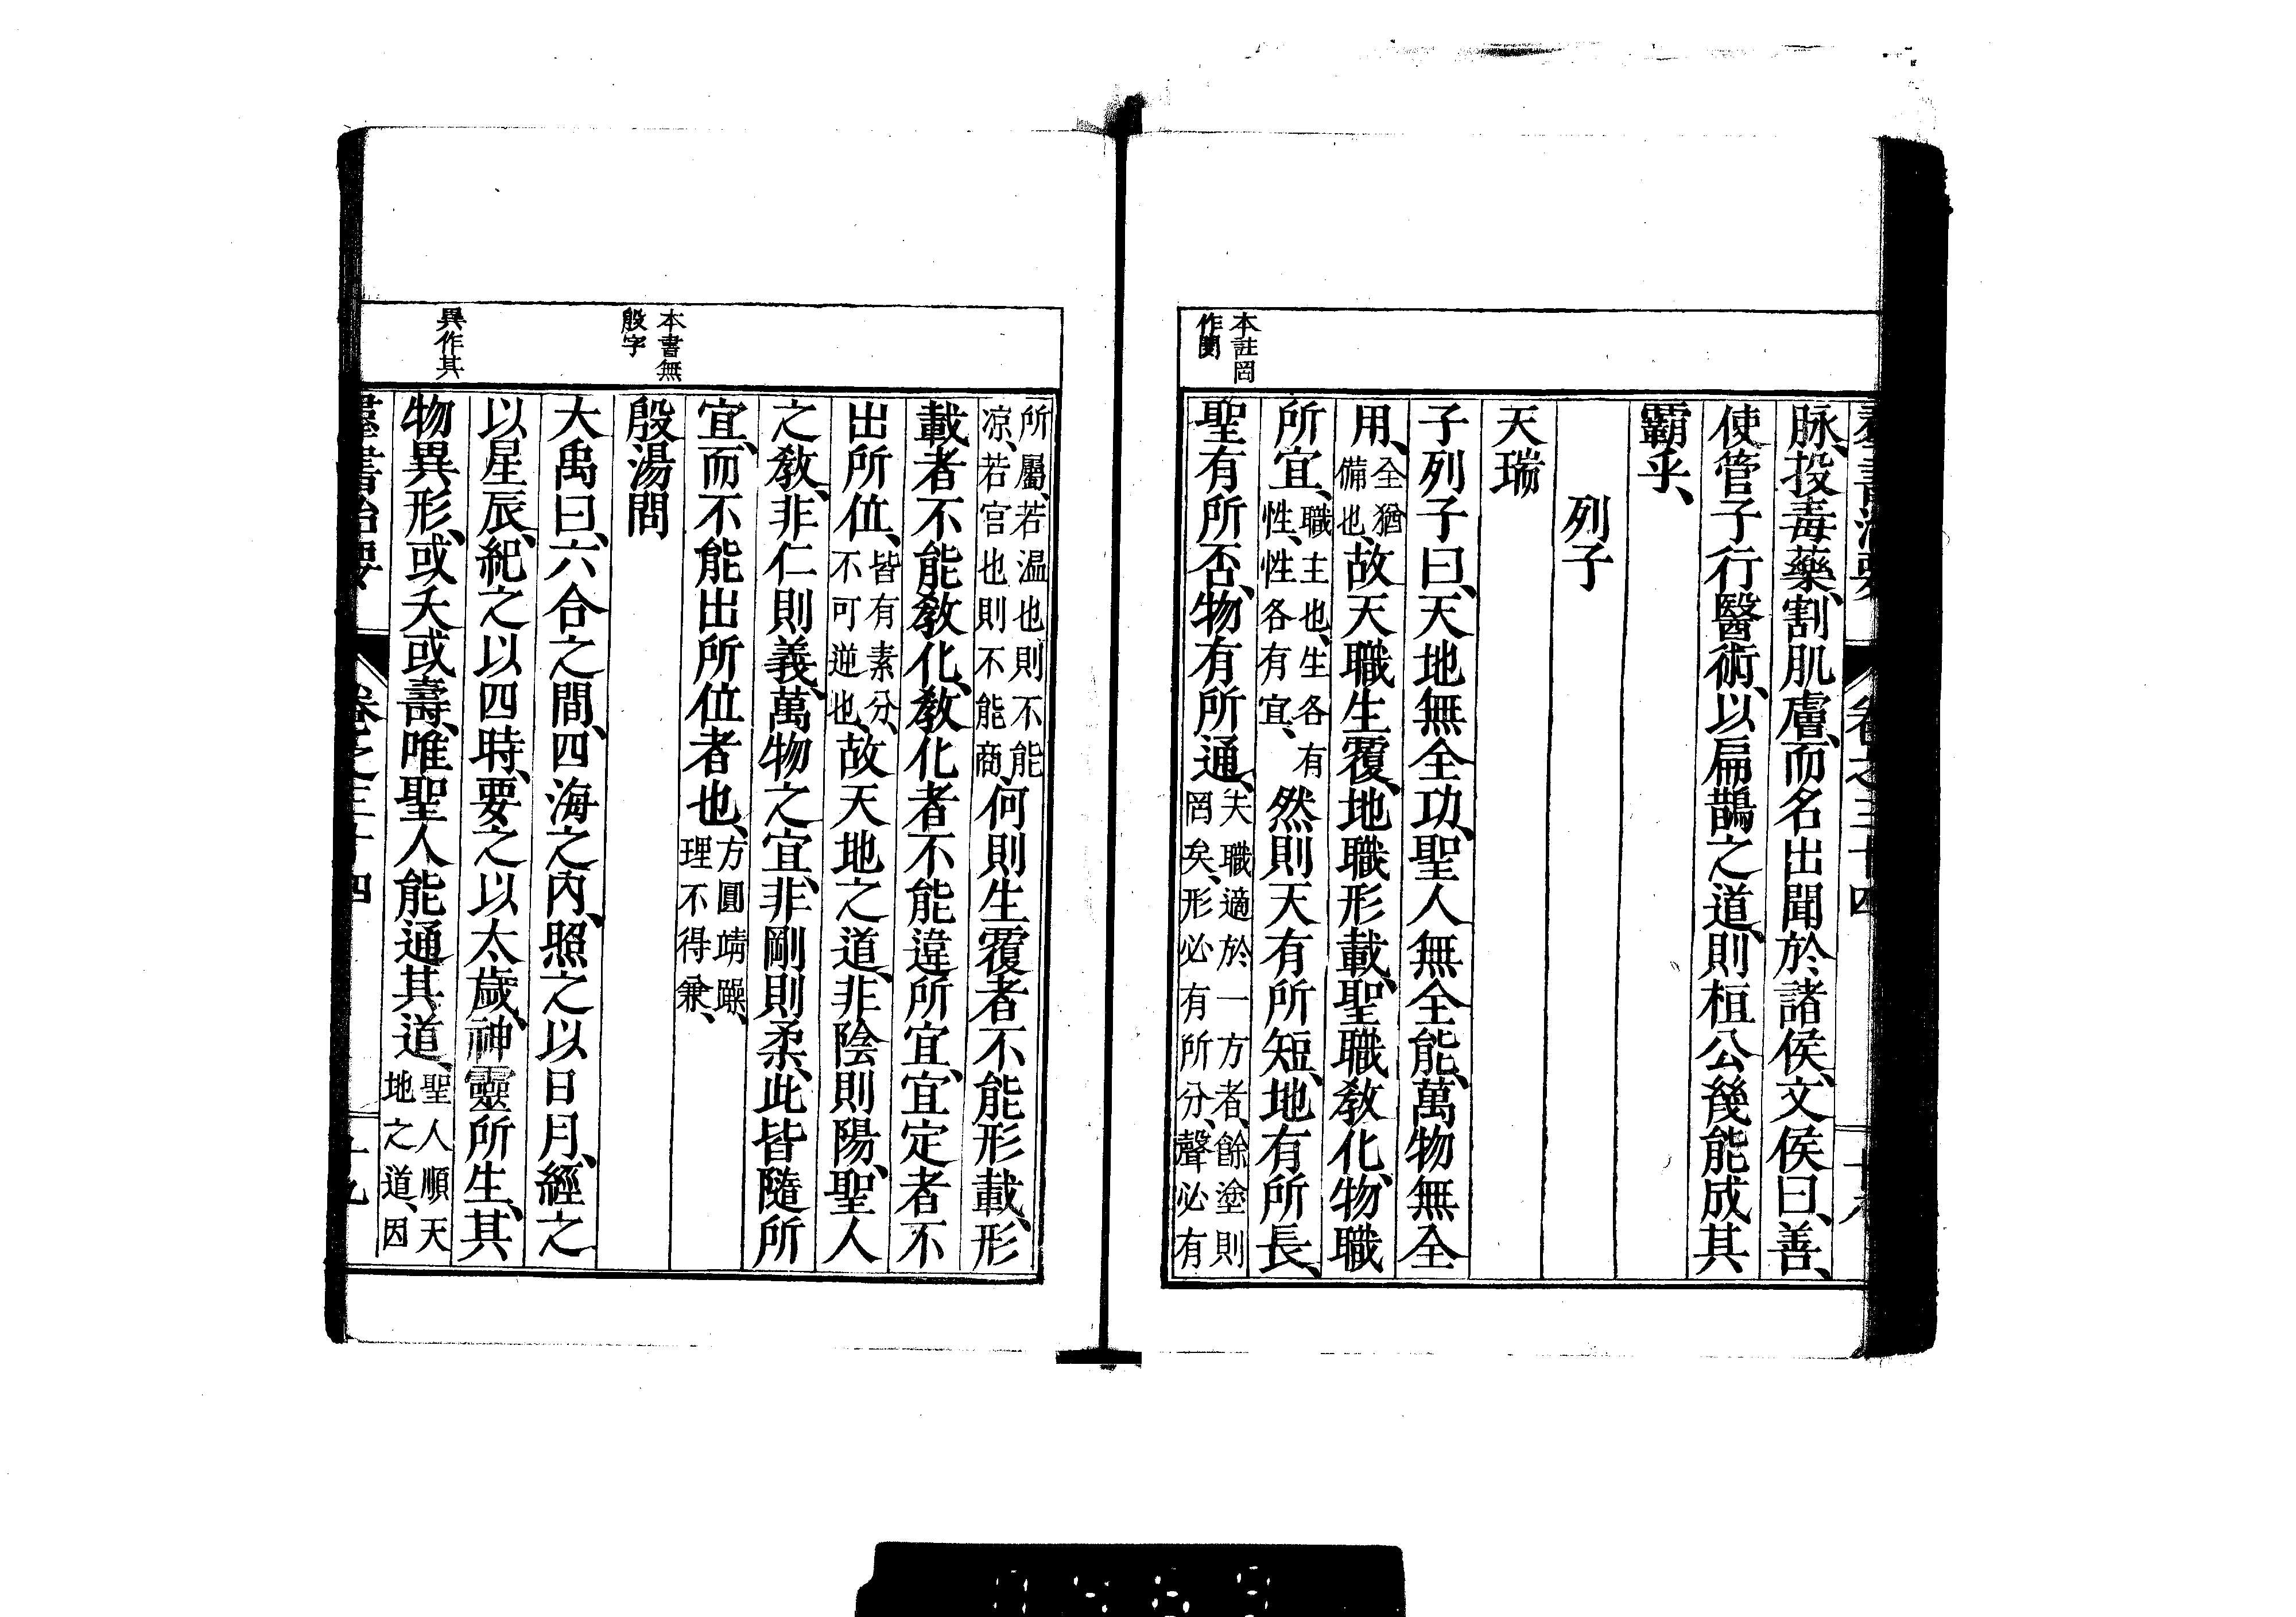 羣書治要 卷之三十四 十八
脉、投毒藥、割肌膚、而名出聞於諸侯、文侯曰、善、
使管子行醫術、以扁鵲之道、則桓公幾能成其
霸乎、
列子
天瑞
子列子曰、天地無全功、聖人無全能、萬物無全
用、全猶備也、故天職生覆、地職形載、聖職教化、物職
所宜、職主也、生各有性、性各有宜、然則天有所短、地有所長、
聖有所否、物有所通、夫職適於一方者、餘塗則罔矣、形必有所分、聲必有
本註罔
作闅
所屬、若温也則不能凉、若宫也則不能商、何則生覆者不能形載、形
載者不能教化、教化者不能違所宜、宜定者不
出所位、皆有素分、不可逆也、故天地之道、非陰則陽、聖人
之教、非仁則義、萬物之宜、非剛則柔、此皆隨所
宜、而不能出所位者也、方圓靖躁、理不得兼、
殷湯問
大禹曰、六合之間、四海之内、照之以日月、經之
以星辰、紀之以四時、要之以太歲、神靈所生、其
物異形、或夭或壽、唯聖人能通其道、聖人順天地之道、因
本書無
殷字
異作其
羣書治要 卷之三十四 十九